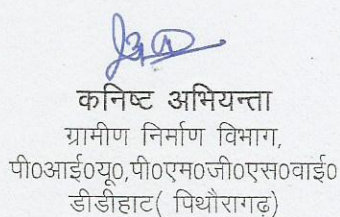 कनिष्ट अभियन्ता
ग्रामीण निर्माण विभाग,
पी0आई0यू0,पी0एम0जी0एस0वाई0
डीडीहाट( पिथौरागढ़)